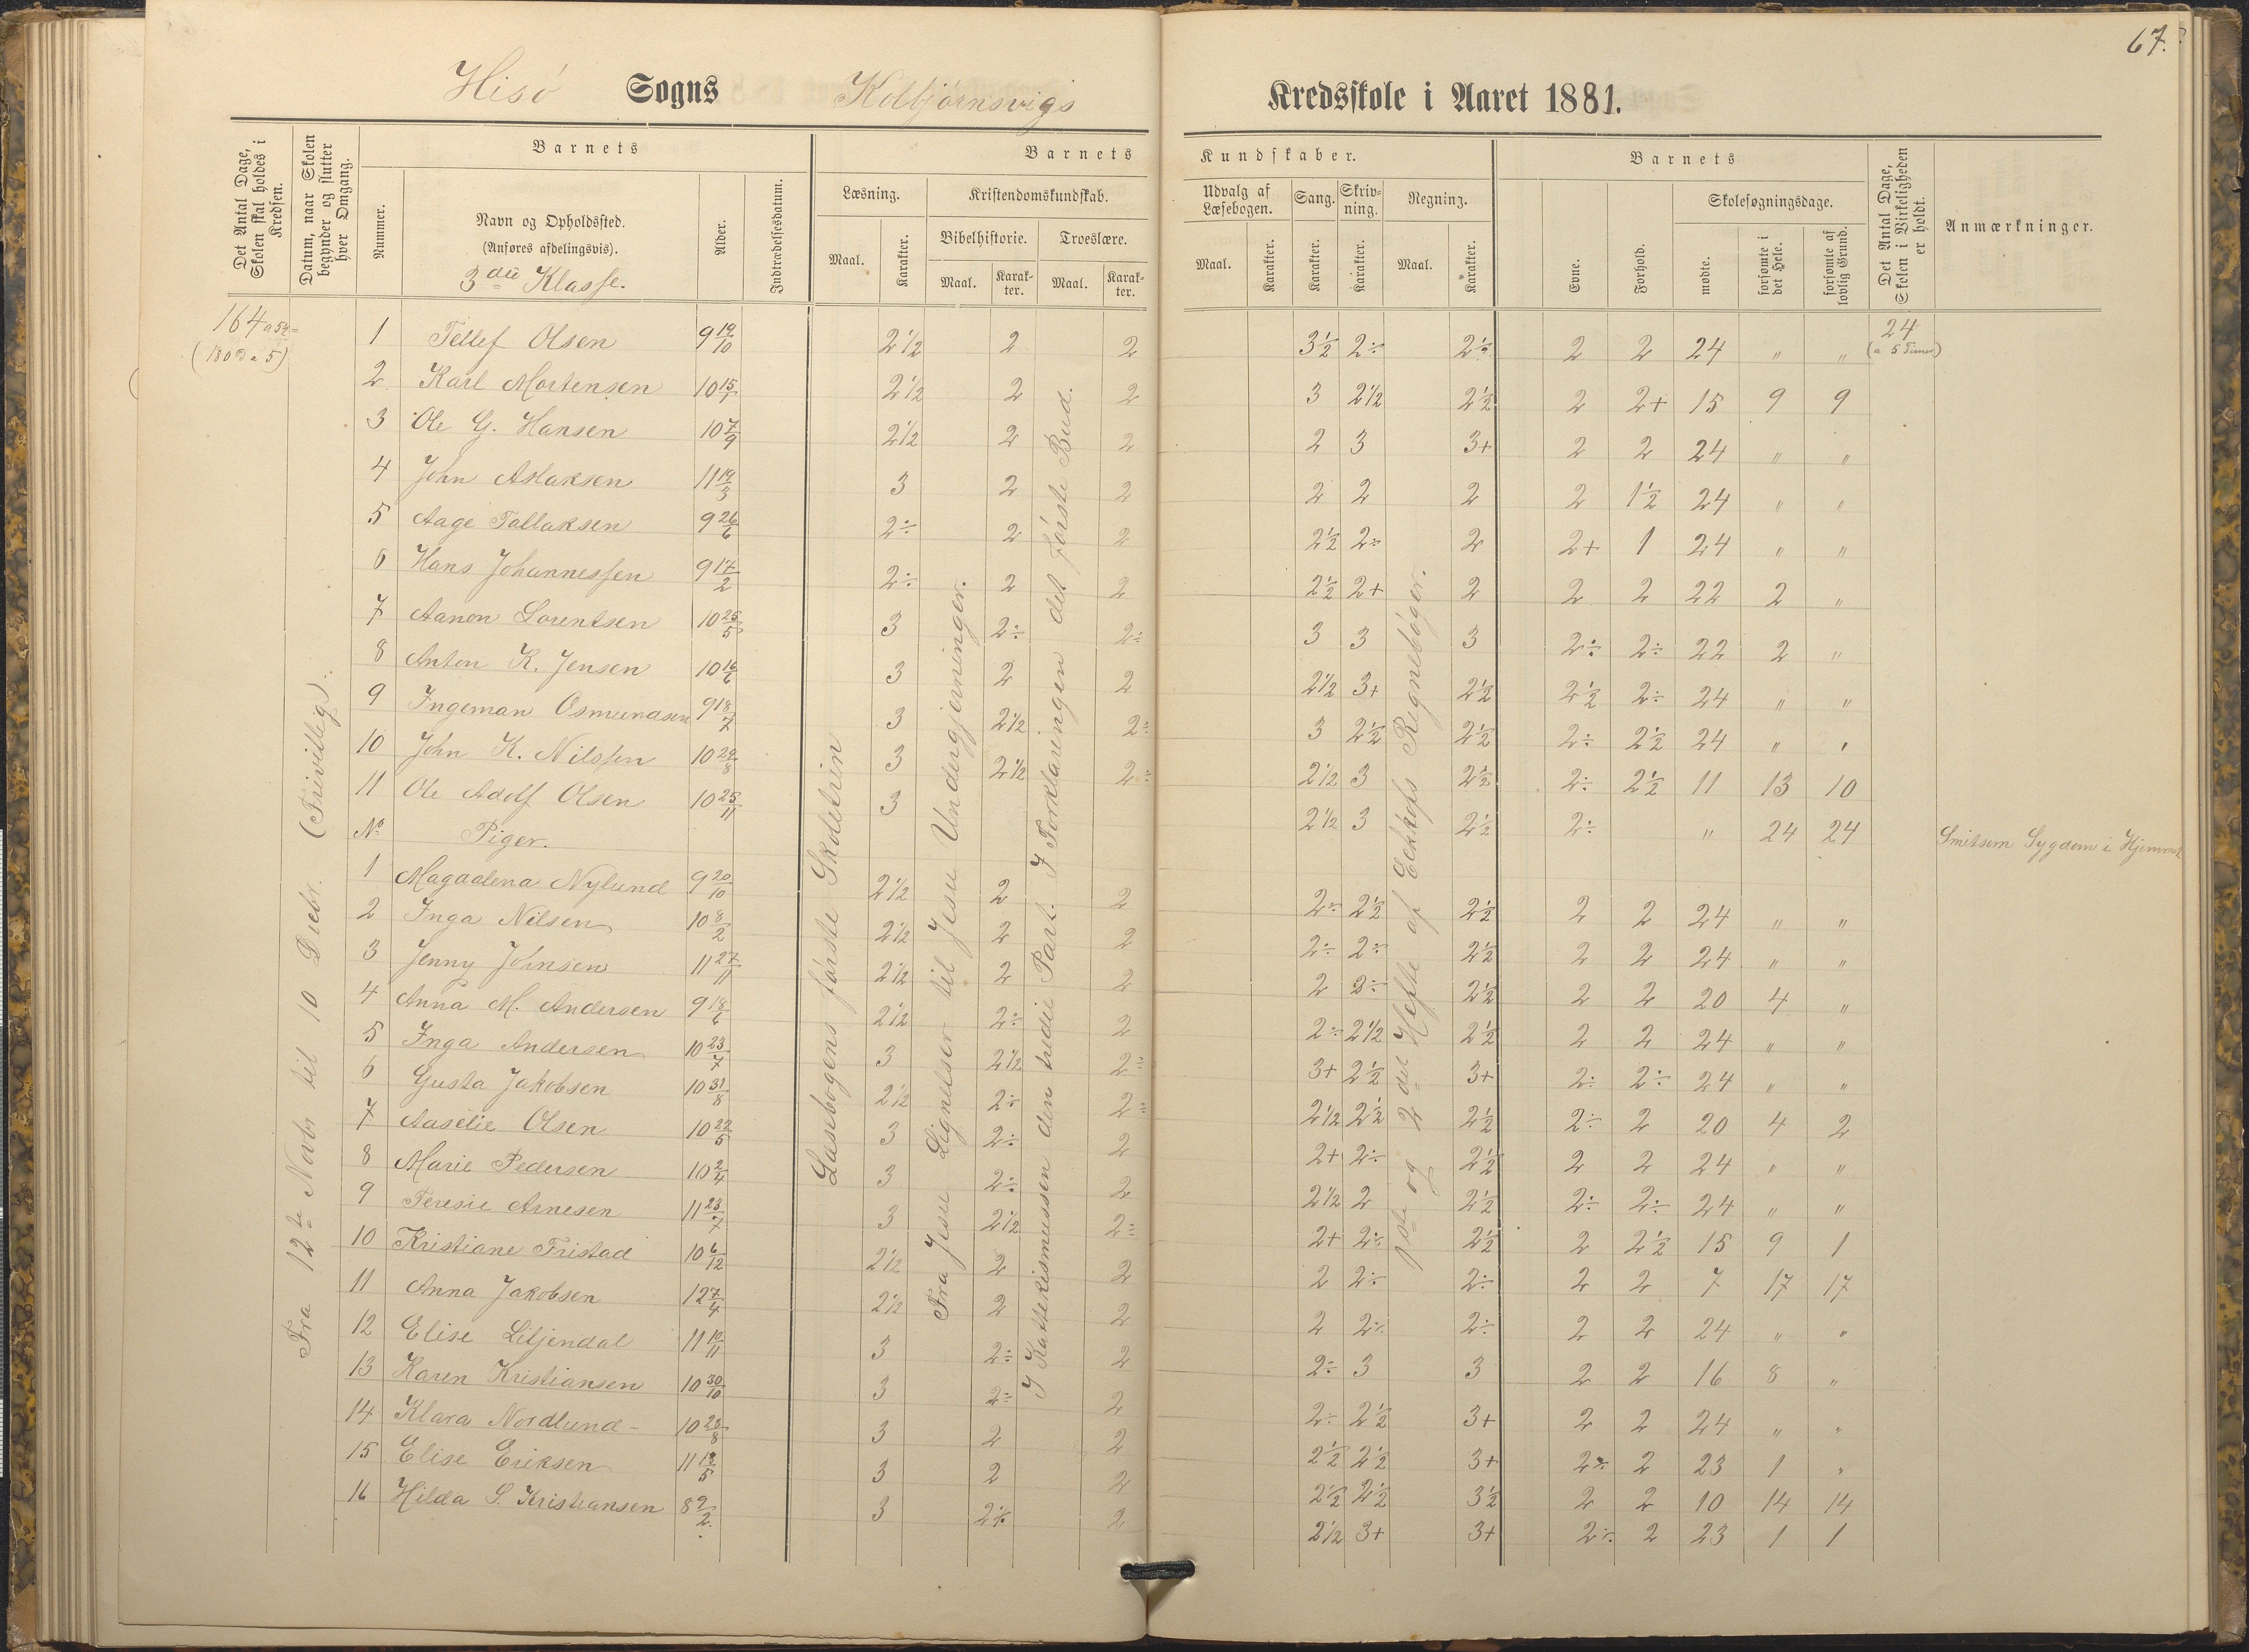 67.
Hisø Sogns Kolbjørnsvigs Kredsskole i Aaret 1881.
Det Antal Dage, Skolen skal holdes i Kredsen.
Datum, naar Skolen begynder og slutter hver Omgang.
Barnets
Nummer.
Navn og Opholdssted.
(Anføres afdelingsvis).
3die Klasse.
Alder.
Indtrædelsesdatum.
Barnets Kundskaber.
Læsning.
Maal. Karakter.
Kristendomskundskab.
Bibelhistorie. Troeslære.
Maal. Karakter. Maal. Karakter.
Udvalg af Læsebogen.
Maal. Karakter.
Sang. Karakter.
Skrivning. Karakter.
Regning.
Maal. Karakter.
Barnets
Evne. Forhold.
Skolesøgningsdage.
mødte. forsømte i det Hele. forsømte af lovlig Grund.
Det Antal Dage, Skolen i Virkeligheden er holdt.
Anmærkninger.
164 a 5½=
(180 D a 5)
Fra 12te Novbr til 10 Decbr. (Frivillig).
Læsebogens første Skoletrin
Fra Jesu Lignelser til Jesu Undergjerninger.
I Kattekismussen den tredie Part. I Forklaringen det første Bud.
1ste og 2det Hefte af Eckhofs Regnebøger.
24
(a 5 Timer)
1 Tellef Olsen 9 19/10 2 1/2 2 2 3 1/2 2÷ 2 1/2 2 2 24 " "
2 Karl Mortensen 10 15/7 2 1/2 2 2 3 2 1/2 2 1/2 2 2+ 15 9 9
3 Ole G. Hansen 10 7/9 2 1/2 2 2 2 3 3+ 2 2 24 " "
4 John Aslaksen 11 19/3 3 2 2 2 2 2 2 1 1/2 24 " "
5 Aage Tallaksen 9 26/6 2÷ 2 2 2 1/2 2÷ 2 2+ 1 24 " "
6 Hans Johannessen 9 17/2 2÷ 2 2 2 1/2 2+ 2 2 2 22 2 "
7 Aanon Lorentsen 10 25/5 3 2÷ 2÷ 3 3 3 2÷ 2÷ 22 2 "
8 Anton K. Jensen 10 16/6 3 2 2 2 1/2 3+ 2 1/2 2 1/2 2÷ 24 " "
9 Ingeman Osmundsen 9 18/7 3 2 1/2 2÷ 3 2 1/2 2 1/2 2÷ 2 1/2 24 " "
10 John K. Nilssen 10 29/8 3 2 1/2 2÷ 2 1/2 3 2 1/2 2÷ 2 1/2 11 13 10
11 Ole Adolf Olsen 10 25/11 3 2 1/2 3 2 1/2 2÷ " 24 24 Smitsom Sygdom i Hjemmet
No Piger.
1 Magdalena Nylund 9 20/10 2 1/2 2 2 2÷ 2 1/2 2 1/2 2 2 24 " "
2 Inga Nilsen 10 8/2 2 1/2 2 2 2÷ 2÷ 2 1/2 2 2 24 " "
3 Jenny Johnsen 11 27/11 2 1/2 2 2 2 2÷ 2 1/2 2 2 20 4 "
4 Anna M. Andersen 9 18/6 2 1/2 2÷ 2 2÷ 2 1/2 2 1/2 2 2 24 " "
5 Inga Andersen 10 23/7 3 2 1/2 2÷ 3+ 2 1/2 3+ 2÷ 2÷ 24 " "
6 Gusta Jakobsen 10 31/8 2 1/2 2÷ 2÷ 2 1/2 2 1/2 2 1/2 2÷ 2 20 4 2
7 Aaselie Olsen 10 22/5 3 2÷ 2 2+ 2÷ 2 1/2 2 2 24 " "
8 Marie Pedersen 10 2/4 3 2÷ 2 2 1/2 2 2 1/2 2÷ 2÷ 24 " "
9 Teresie Arnesen 11 23/7 3 2 1/2 2÷ 2+ 2÷ 2 1/2 2 2 1/2 15 9 1
10 Kristiane Fristad 10 6/12 2 1/2 2 2 2 2÷ 2÷ 2 2 7 17 17
11 Anna Jakobsen 12 7/4 2 1/2 2 2 2 2÷ 2÷ 2 2 24 " "
12 Elise Liljendal 11 10/11 3 2÷ 2 2÷ 3 3 2 2 16 8 "
13 Karen Kristiansen 10 30/10 3 2÷ 2 2÷ 2 1/2 3+ 2 2 24 " "
14 Klara Nordlund 10 28/8 3 2 2 2 1/2 2 1/2 3+ 2÷ 2 23 1 "
15 Elise Eriksen 11 12/5 3 2 2 2 1/2 2 1/2 3 1/2 2 2 10 14 14
16 Hilda S. Kristiansen 8 2/2 3 2÷ 2 2 1/2 3+ 3+ 2÷ 2 23 1 1